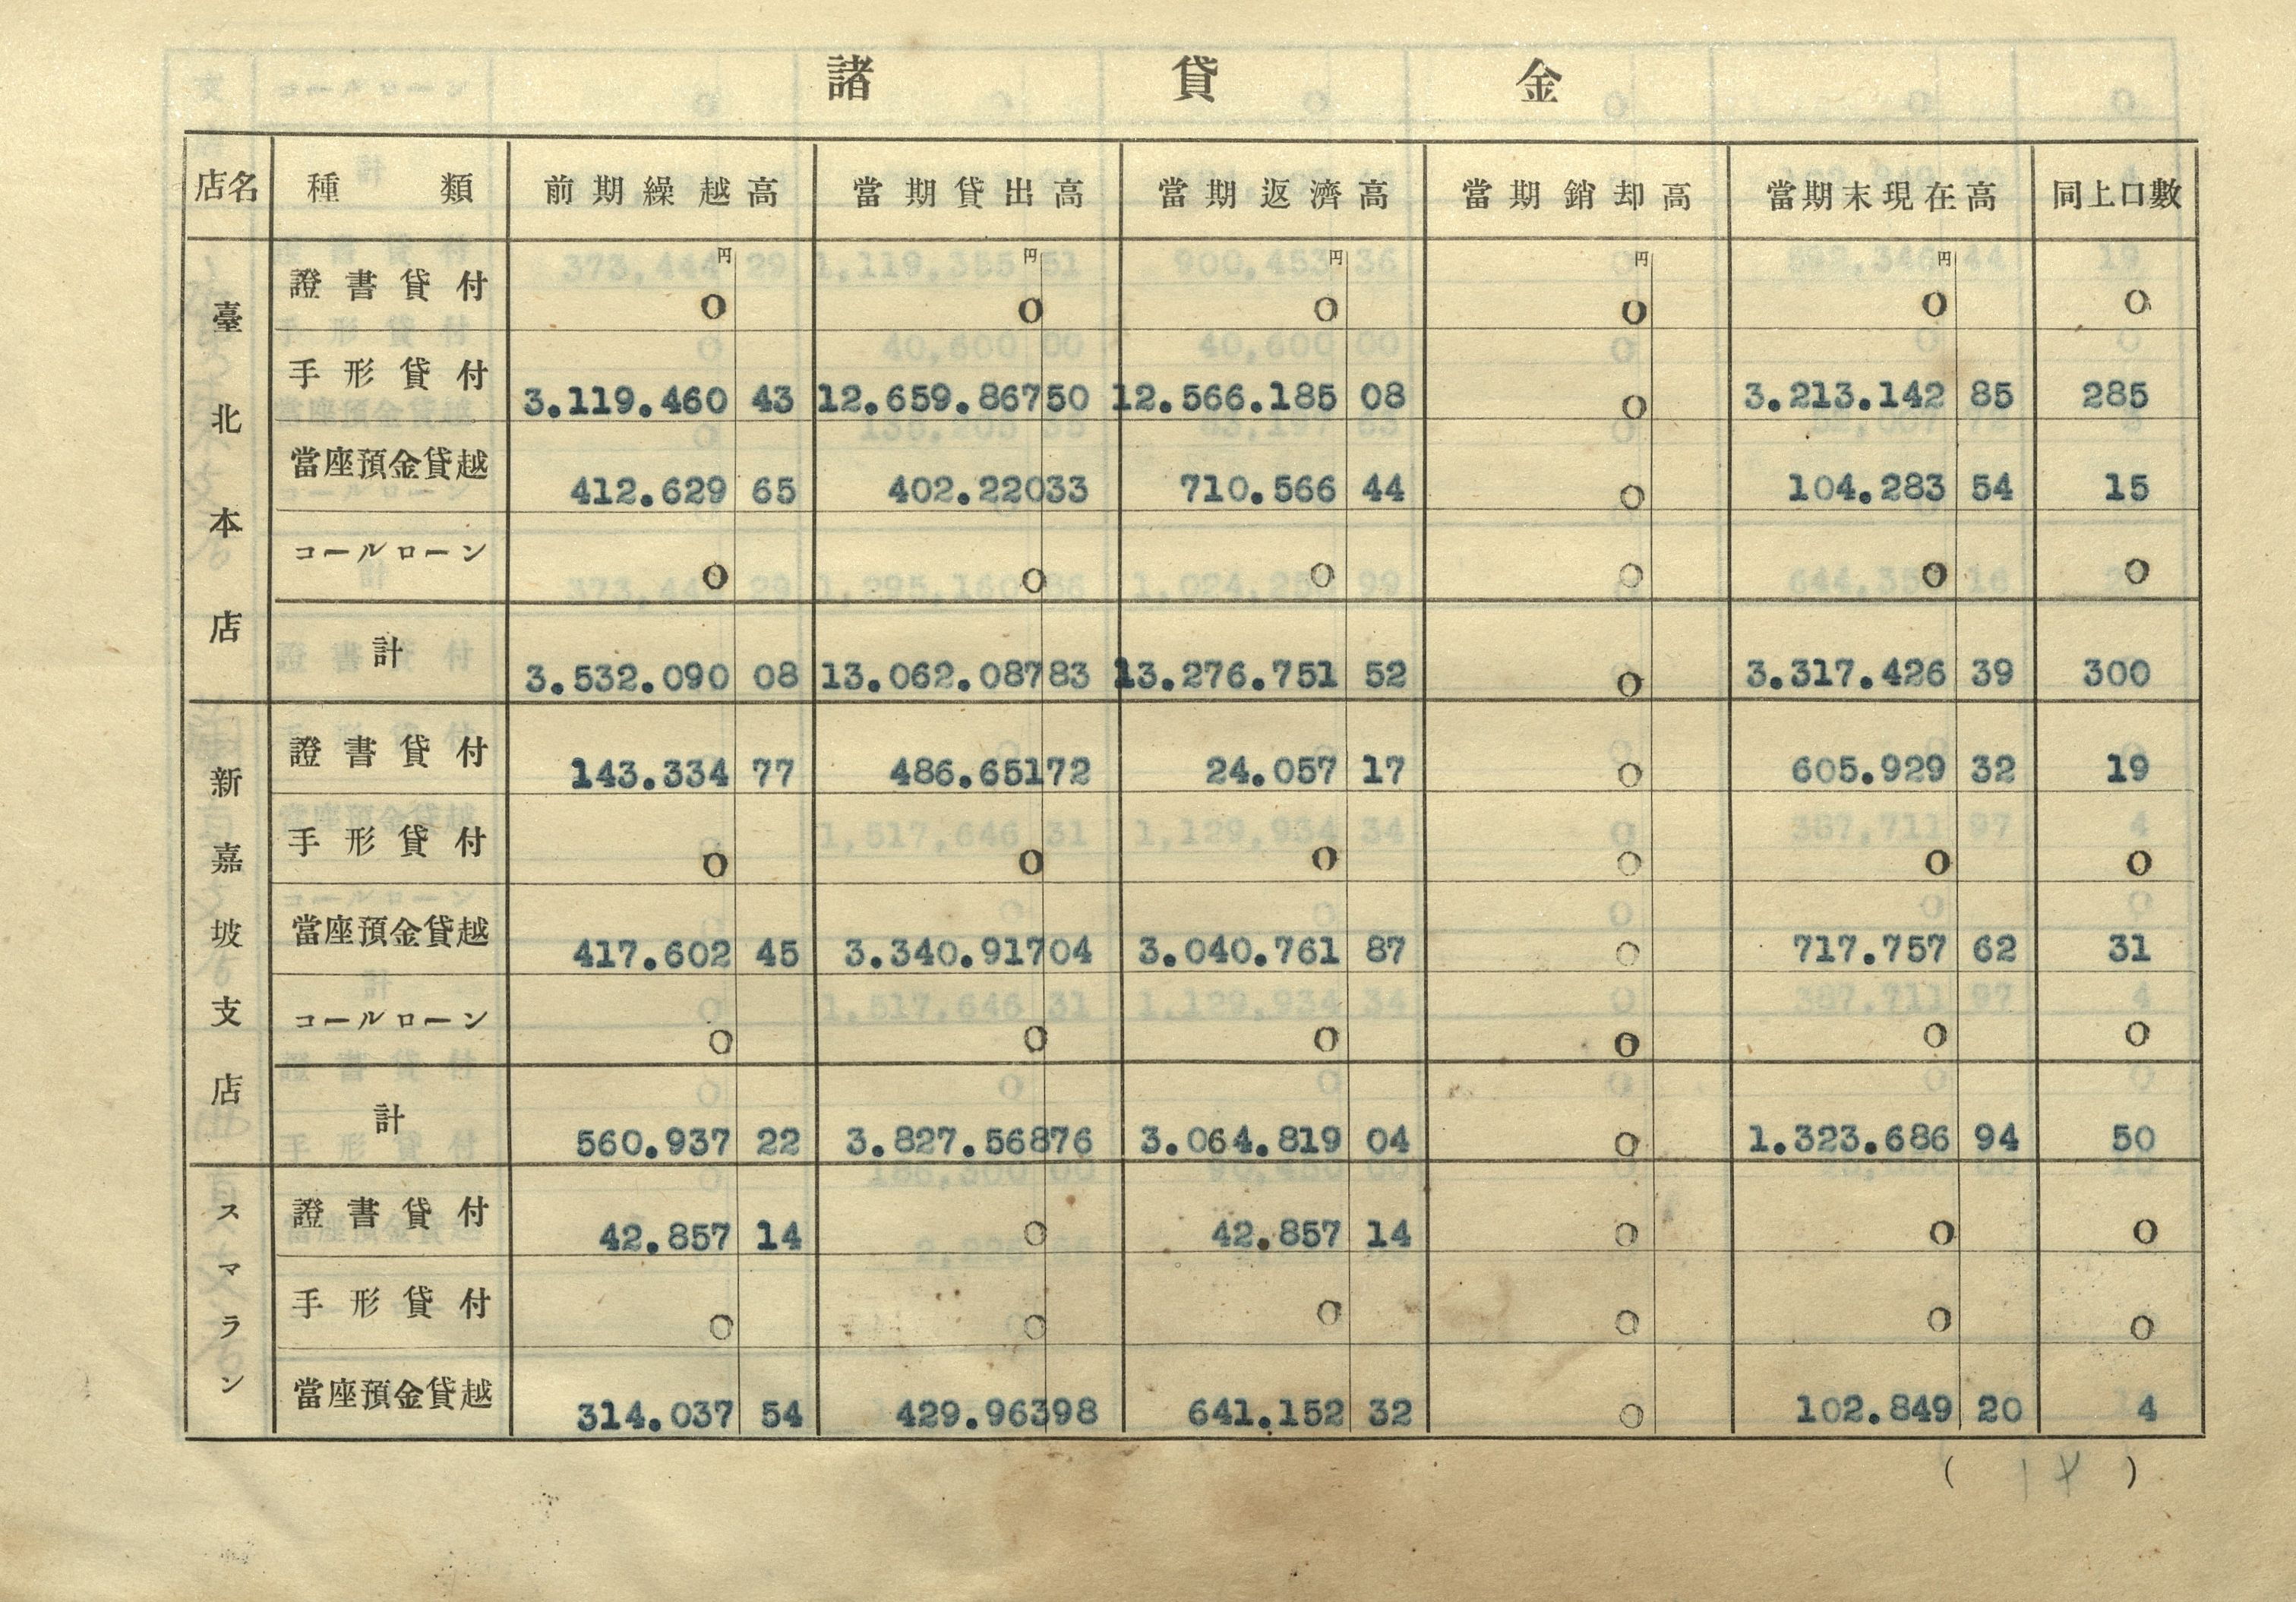 諸貸金
店名 種類 前期繰越高 當期貸出高 當期返濟高 當期銷却高 當期末現在高 同上口數
円 円 円 円 円
臺北本店
證書貸付 0 0 0 0 0 0
手形貸付 3.119.460 43 12.659.867 50 12.566.185 08 0 3.213.142 85 285
當座預金貸越 412.629 65 402.220 33 710.566 44 0 104.283 54 15
コールローン 0 0 0 0 0 0
計 3.532.090 08 13.062.087 83 13.276.751 52 0 3.317.426 39 300
新嘉坡支店
證書貸付 143.334 77 486.651 72 24.057 17 0 605.929 32 19
手形貸付 0 0 0 0 0 0
當座預金貸越 417.602 45 3.340.917 04 3.040.761 87 0 717.757 62 31
コールローン 0 0 0 0 0 0
計 560.937 22 3.827.568 76 3.064.819 04 0 1.323.686 94 50
スマラン
證書貸付 42.857 14 0 42.857 14 0 0 0
手形貸付 0 0 0 0 0 0
當座預金貸越 314.037 54 429.963 98 641.152 32 0 102.849 20 4